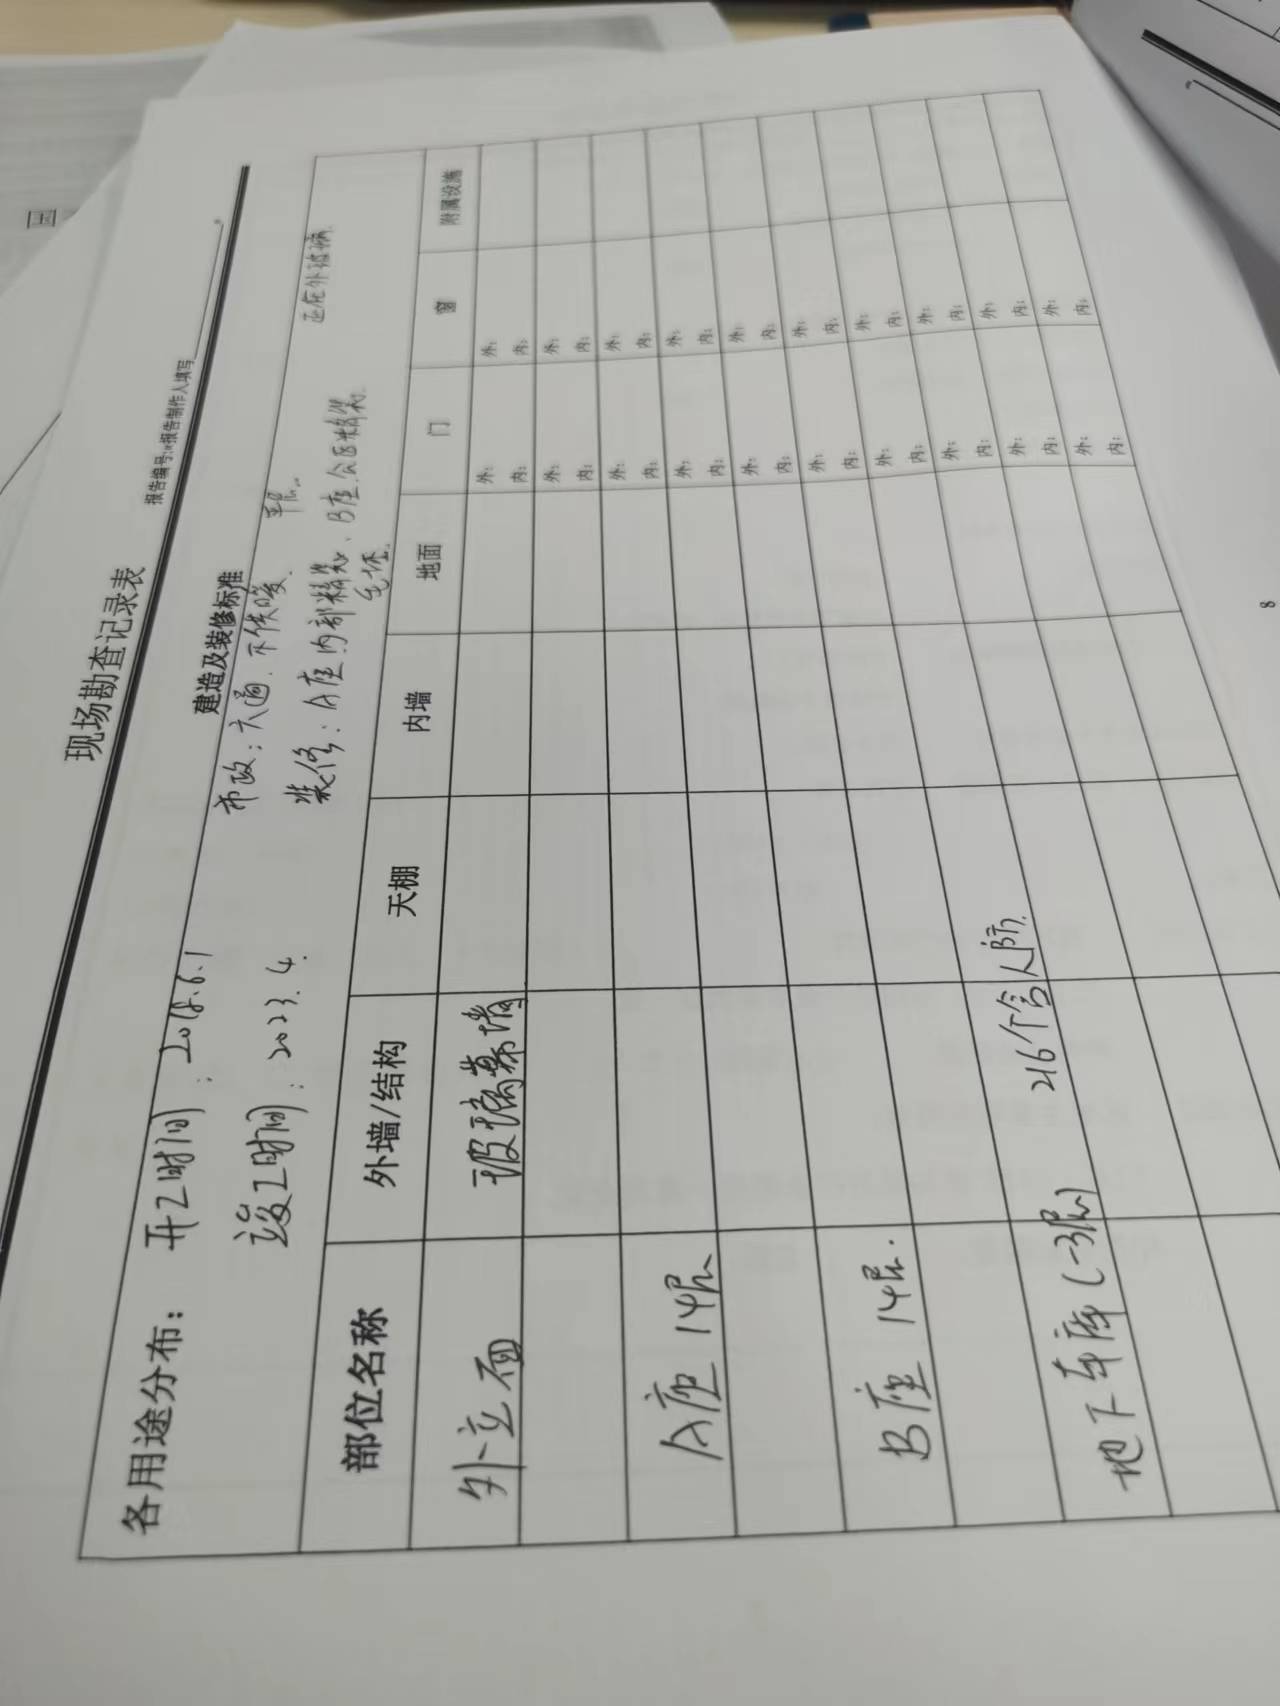 现场勘查记录表
报告编号:※报告制作人填写
建造及装修标准
各用途分布: 开工时间: 2018.6.1 市政: 六通. 不供暖.
竣工时间: 2023.4. 装修: A座内部精装、B座公区精装
毛坯.
部位名称 外墙/结构 天棚 内墙 地面 门 窗 附属设施
外立面 玻璃幕墙 外: 内: 外: 内:
外: 内: 外: 内:
A座 14层 外: 内: 外: 内:
外: 内: 外: 内:
B座 14层. 外: 内: 外: 内:
外: 内: 外: 内:
地下车库(-3层) 216个含人防. 外: 内: 外: 内:
外: 内: 外: 内:
外: 内: 外: 内:
外: 内: 外: 内:
8